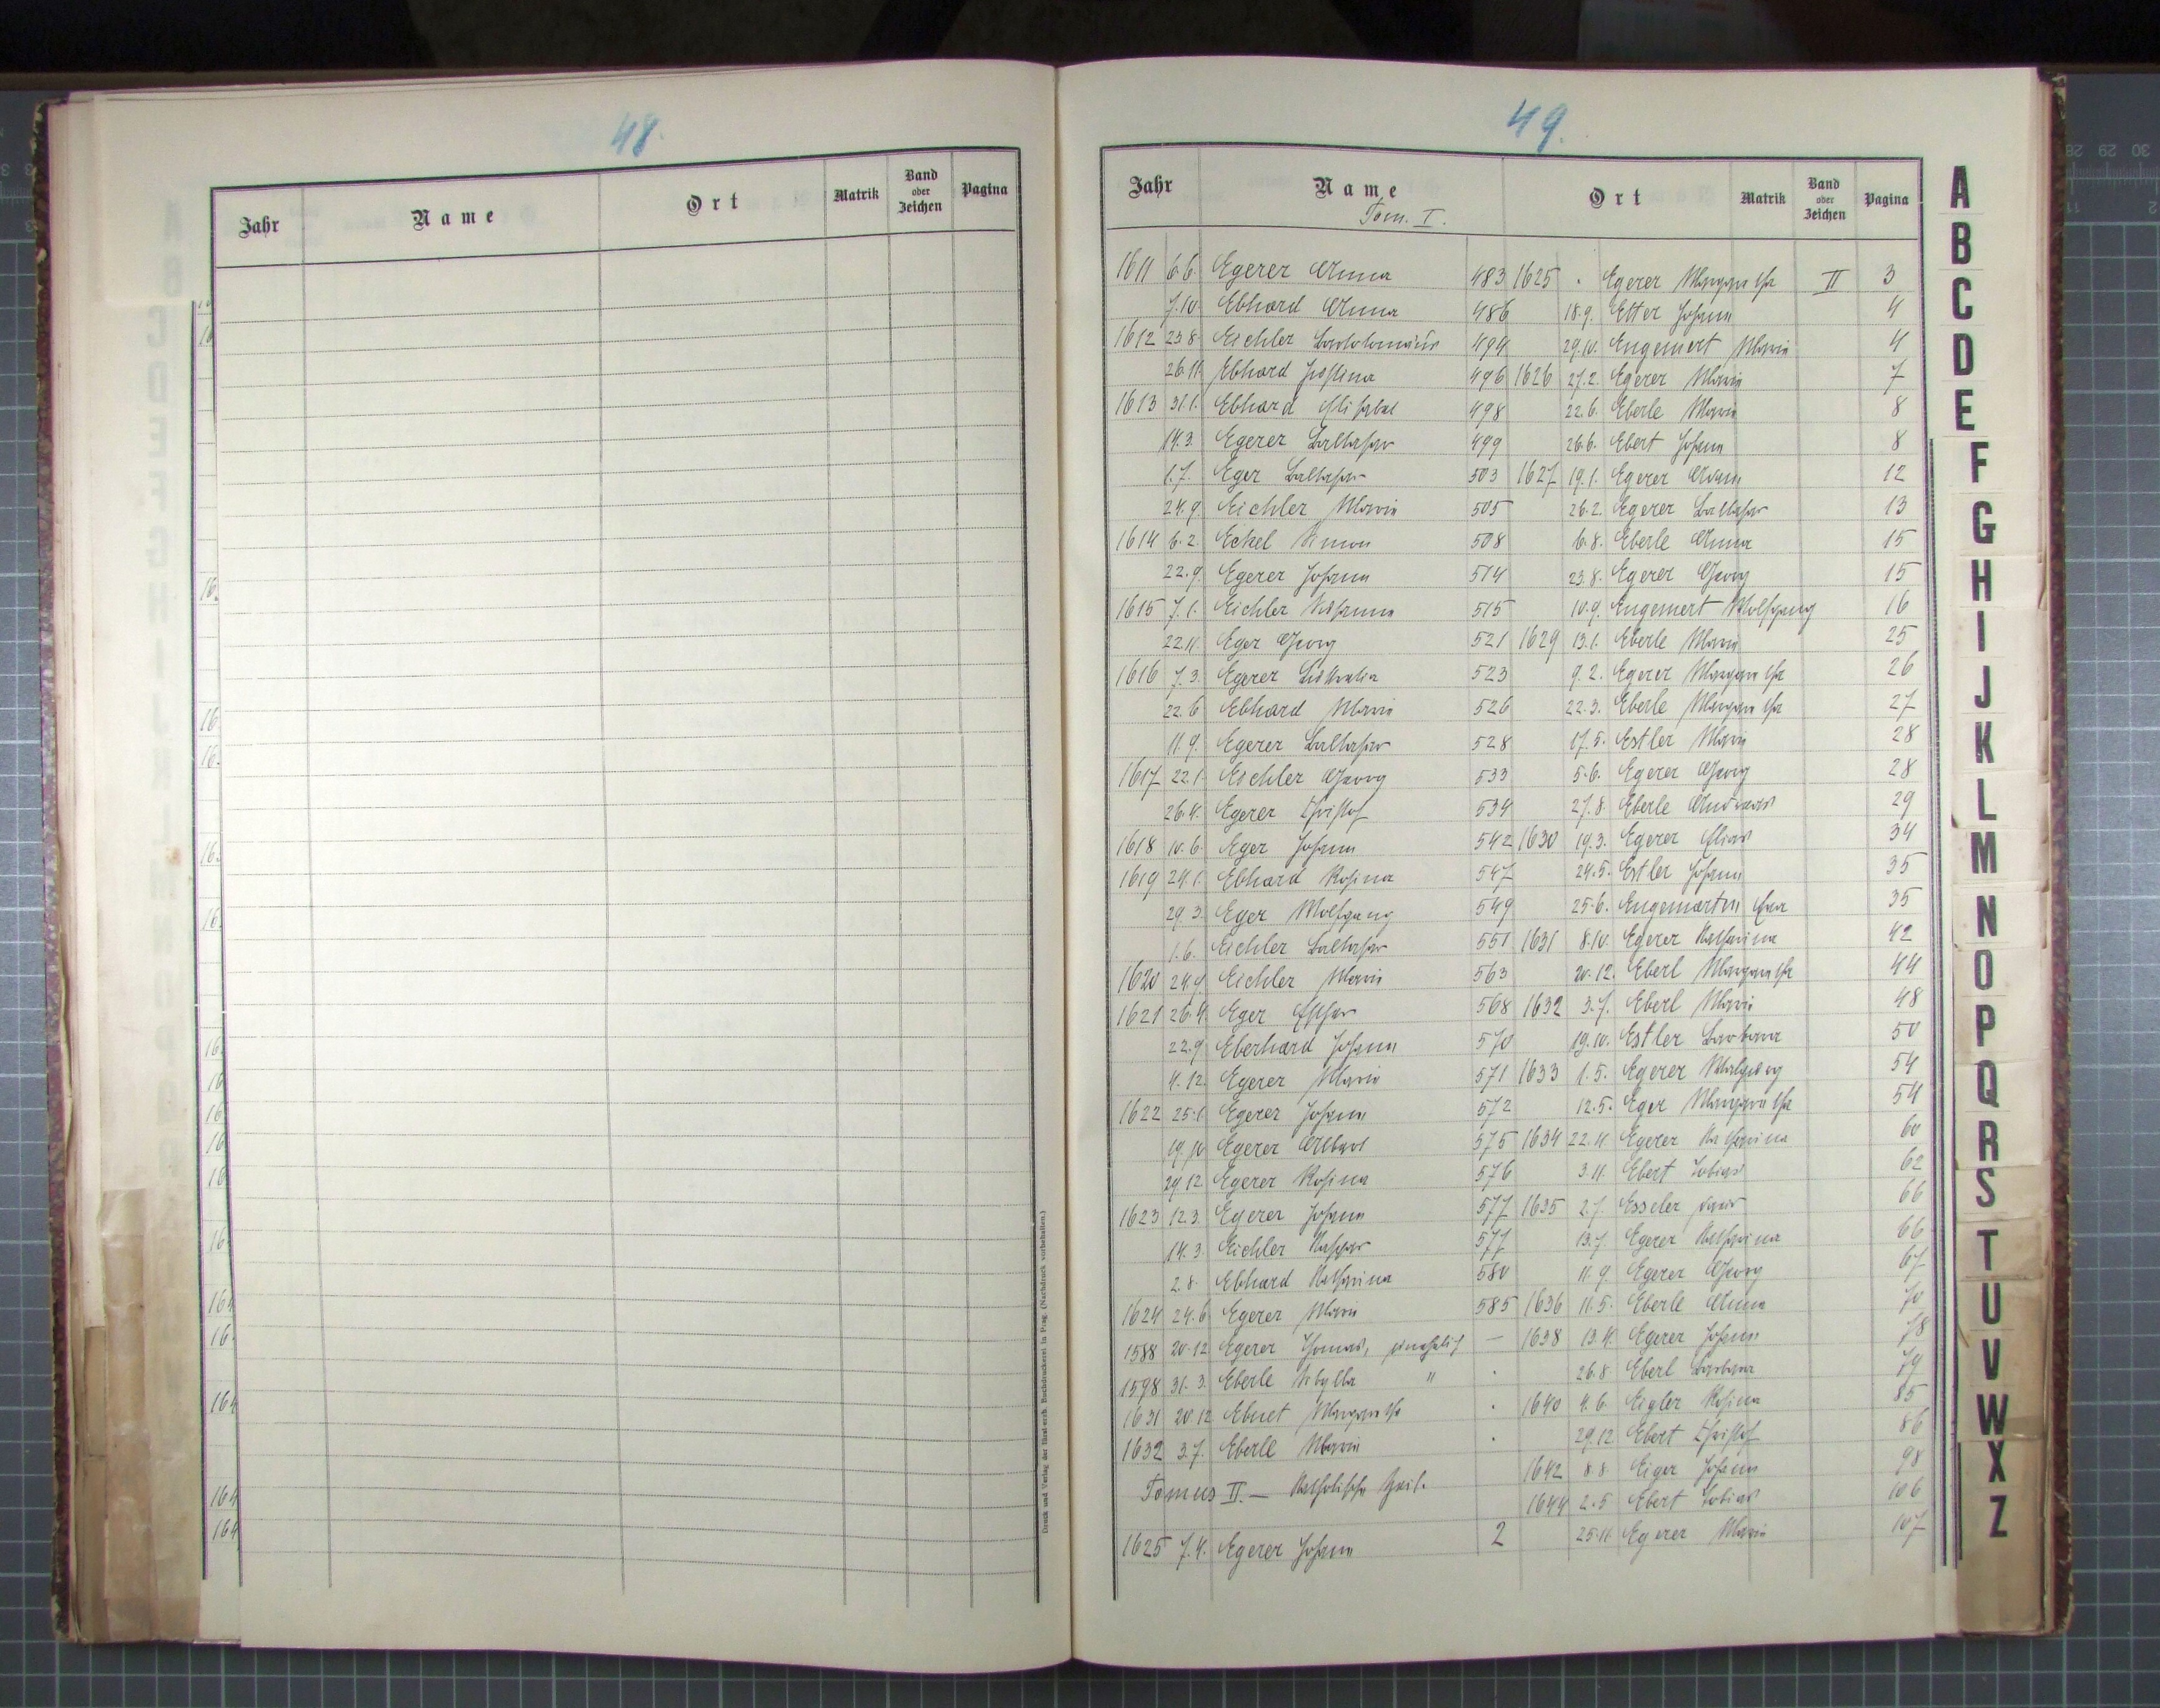 48.
Jahr Name Ort Matrik Band oder Zeichen Pagina
Druck und Verlag der fürst-erzb. Buchdruckerei in Prag. (Nachdruck vorbehalten.)
49.
Jahr Name Ort Matrik Band oder Zeichen Pagina
Tom. I.
1611 6.6. Egerer Anna 483
7.10. Ebhard Anna 486
1612 23.8. Eichler Bartolomäus 494
26.11. Ebhard Justina 496
1613 31.1. Ebhard Elisabet 498
14.3. Egerer Baltasar 499
1.7. Eger Baltasar 503
24.9. Eichler Marie 505
1614 6.2. Eckel Simon 508
22.9. Egerer Johann 514
1615 7.1. Eichler Susanna 515
22.11. Eger Georg 521
1616 7.3. Egerer 523
22.6. Ebhard Marie 526
11.9. Egerer Baltasar 528
1617 22.1. Eichler Georg 533
26.4. Egerer Christof 534
1618 10.6. Eger Johann 542
1619 24.1. Ebhard Rosina 547
29.3. Eger Wolfgang 549
1.6. Eichler Baltasar 551
1620 24.9. Eichler Marie 563
1621 26.4. Eger Esther 568
22.9. Eberhard Johann 570
4.12. Egerer Marie 571
1622 25.1. Egerer Johann 572
19.10. Egerer Albert 575
29.12. Egerer Rosina 576
1623 12.3. Egerer Johann 577
14.3. Eichler Kaspar 577
2.8. Ebhard Katharina 580
1624 24.6. Egerer Marie 585
1588 20.12. Egerer Thomas, unehelich —
1598 31.3. Eberle Sibylla "
1631 20.12. Margaretha
1632 3.7. Eberle Marie
Tomus II. — Katholische Zeit.
1625 7.4. Egerer Johann 2
1625 Egerer Margaretha II 3
18.9. Etter Johann 4
29.10. Engemert Marie 4
1626 27.2. Egerer Marie 7
22.6. Eberle Marie 8
26.6. Ebert Johann 8
1627 19.1. Egerer Adam 12
26.2. Egerer Baltasar 13
6.8. Eberle Anna 15
23.8. Egerer Georg 15
10.9. Engemert Wolfgang 16
1629 13.1. Eberle Marie 25
9.2. Egerer Margaretha 26
22.3. Eberle Margaretha 27
17.5. Estler Marie 28
5.6. Egerer Georg 28
27.8. Eberle Andreas 29
1630 19.3. Egerer Elias 34
24.5. Estler Johann 35
25.6. Engemartin Eva 35
1631 8.10. Egerer Katharina 42
20.12. Eberl Margaretha 44
1632 3.7. Eberl Marie 48
19.10. Estler Barbara 50
1633 1.5. Egerer Walpurg 54
12.5. Eger Margaretha 54
1634 22.11. Egerer Katharina 60
3.11. Ebert Tobias 62
1635 2.7. Esseler 66
13.7. Egerer Katharina 66
11.9. Egerer Georg 67
1636 11.5. Eberle Anna 70
1638 13.4. Egerer Johann 78
26.8. Eberl Barbara 79
1640 4.6. Eigler Rosina 85
29.12. Ebert Christof 86
1642 8.8. Eiger Johann 98
1644 2.5. Ebert Tobias 106
25.11. Egerer Marie 107
A
B
C
D
E
F
G
H
I
J
K
L
M
N
O
P
Q
R
S
T
U
V
W
X
Z